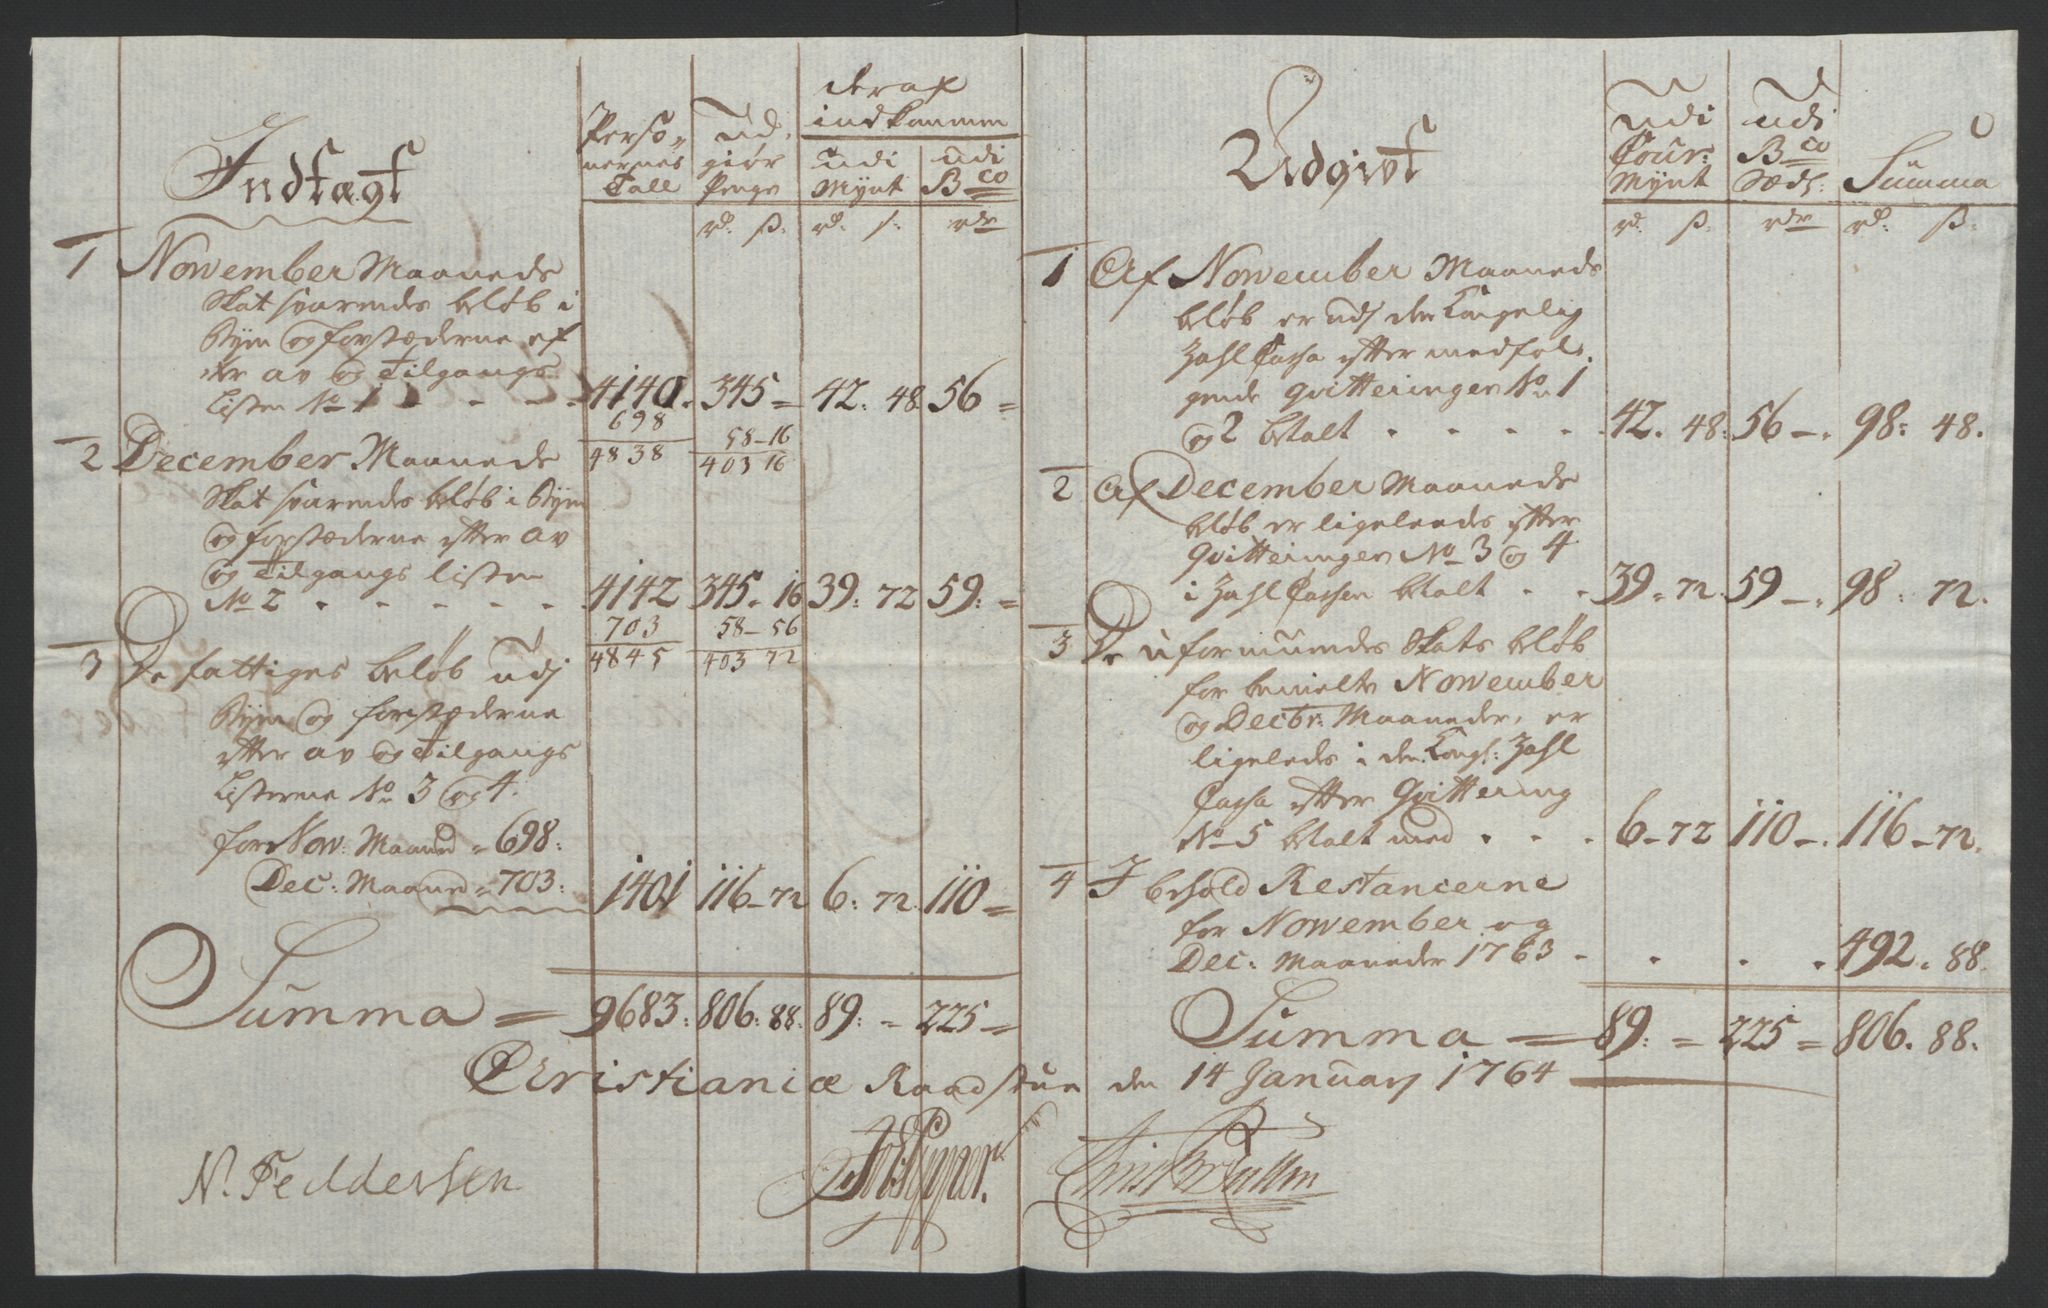 Indtægt
Perso-
nernes
Tall
Ud-
giør
Penge
deraf
indkommen
udi
Mynt
udi
Bco
rd. ß. rd. ß. rdr
1 November Maaneds
Skat svarendes beløb i
Byen og forstæderne ef
ter av og Tilgangs
Listen No 1 - - - 4140. 345 = 42. 48. 56 =
698 58-16
4838 403 16
2 December Maaneds
Skat svarendes beløb i Byen
og forstæderne efter av
og Tilgangs listen
No 2 - - - - - 4142 345. 16 39. 72 59. =
703 58-56
4845 403 72
3 De fattiges beløb udj
Byen og forstæderne
efter av og Tilgangs
Listerne No 3 og 4.
for Nov: Maaned = 698:
Dec: Maaned = 703: 1401 116-72 6. 72. 110 =
Summa = 9683: 806: 88: 89: = 225 =
Udgivt
udi
Cour:
Mynt
udi
Bco
Sædl:
Summa
rd. ß. rdr rd. ß.
1 Af November Maaneds
beløb er udj den Kongelig
Zahl Cassa efter medføl-
gende qvitteringer No 1
og 2 betalt - - - - - 42. 48. 56 -. 98: 48.
2 Af December Maaneds
beløb er ligeleeds efter
Qvitteringer No 3 og 4
i Zahl Cassen betalt - - 39. 72. 59 -. 98. 72.
3 De uformuendes Skats beløb
for bemelte November
og Decbr: Maaneder, er
ligeleds i den Kongl: Zahl
Cassa efter Qvittering
No 5 betalt med - - - 6-72 110-. 116-72.
4 I behold Restancerne
for November og
Dec: Maaneder 1763 - - - - 492. 88.
Summa = 89: = 225 = 806. 88.
Christianiæ Raadstue den 14 January 1764
N. Feddersen